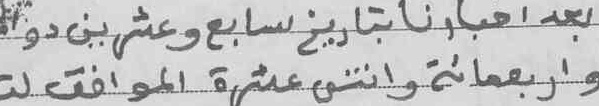 بعد اخبارنا بتاريخ لسابع وعشرين دو
واربعمائة واثنتى عشرة الموافق لت